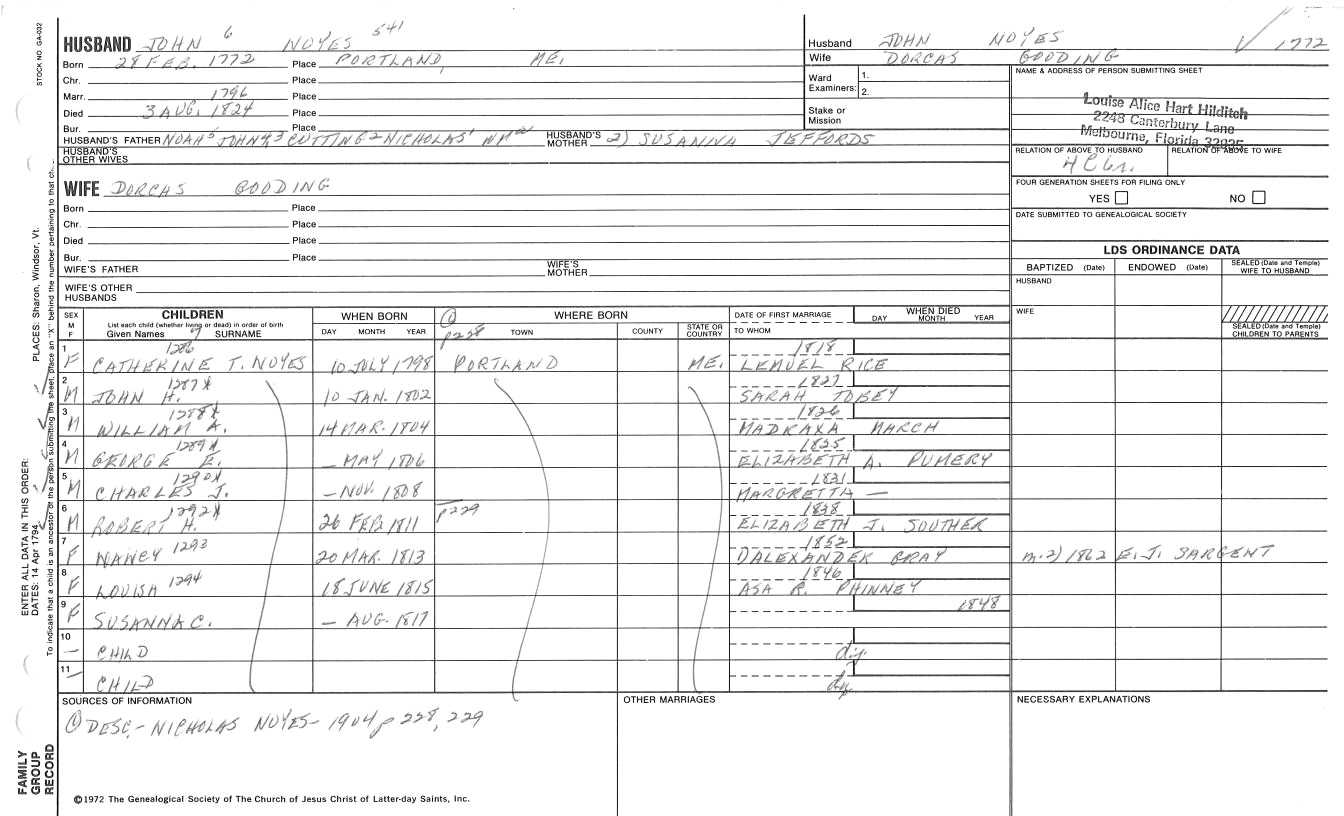 STOCK NO. GA-032
HUSBAND JOHN 6 NOYES 541
Born 28 FEB. 1772 Place PORTLAND, ME.
Chr. Place
Marr. 1796 Place
Died 3 AUG. 1824 Place
Bur. Place
HUSBAND'S FATHER NOAH5 JOHN4,3 CUTTING2 NICHOLAS1 HUSBAND'S MOTHER 2) SUSANNA JEFFORDS
HUSBAND'S OTHER WIVES
WIFE DORCAS GOODING
Born Place
Chr. Place
Died Place
Bur. Place
WIFE'S FATHER WIFE'S MOTHER
WIFE'S OTHER HUSBANDS
Husband JOHN NOYES 1772
Wife DORCAS GOODING
Ward Examiners: 1.
2.
Stake or Mission
NAME & ADDRESS OF PERSON SUBMITTING SHEET
Louise Alice Hart Hilditch
2248 Canterbury Lane
Melbourne, Florida 32935
RELATION OF ABOVE TO HUSBAND RELATION OF ABOVE TO WIFE
FOUR GENERATION SHEETS FOR FILING ONLY
YES NO
DATE SUBMITTED TO GENEALOGICAL SOCIETY
LDS ORDINANCE DATA
BAPTIZED (Date) ENDOWED (Date) SEALED (Date and Temple) WIFE TO HUSBAND
HUSBAND
WIFE
SEALED (Date and Temple) CHILDREN TO PARENTS
SEX M F CHILDREN WHEN BORN WHERE BORN DATE OF FIRST MARRIAGE WHEN DIED
List each child (whether living or dead) in order of birth
Given Names 7 SURNAME DAY MONTH YEAR 1 p228 TOWN COUNTY STATE OR COUNTRY TO WHOM DAY MONTH YEAR
1 1286 1818
F CATHERINE T. NOYES 10 JULY 1798 PORTLAND ME. LEMUEL RICE
2 1287X 1827
M JOHN H. 10 JAN. 1802 SARAH TOBEY
3 1288X 1826
M WILLIAM A. 14 MAR. 1804 MADRAXA MARCH
4 1289X 1825
M GEORGE E. - MAY 1806 ELIZABETH A. PUMERY
5 1290X 1831
M CHARLES J. - NOV. 1808 MARGRETTA -
6 1292X p229 1838
M ROBERT H. 26 FEB. 1811 ELIZABETH J. SOUTHER
7 1293 1852
F NANCY 20 MAR. 1813 DALEXANDER GRAY m. 2) 1862 E. J. SARGENT
8 1294 1846
F LOUISA 18 JUNE 1815 ASA R. PHINNEY
9 1848
F SUSANNA C. - AUG. 1817
10
- CHILD d.y.
11
- CHILD d.y.
SOURCES OF INFORMATION OTHER MARRIAGES NECESSARY EXPLANATIONS
1 DESC. - NICHOLAS NOYES - 1904 p 228, 229
©1972 The Genealogical Society of The Church of Jesus Christ of Latter-day Saints, Inc.
ENTER ALL DATA IN THIS ORDER:
DATES: 14 Apr 1794 PLACES: Sharon, Windsor, Vt.
To indicate that a child is an ancestor of the person submitting the sheet, place an "X" behind the number pertaining to that ch
FAMILY GROUP RECORD